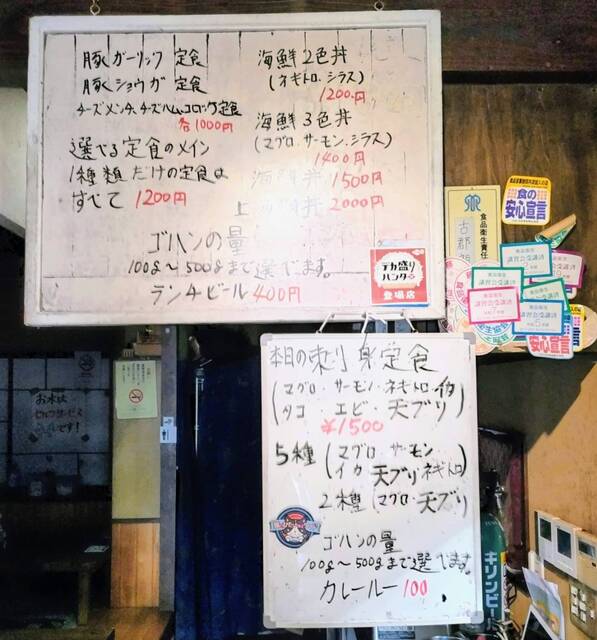 豚ガーリック 定食
豚ショウガ 定食
チーズメンチ、チーズハムコロッケ定食
各1000円
選べる定食のメイン
1種類だけの定食は
すべて 1200円
海鮮2色丼
(ネギトロ、シラス)
1200円
海鮮3色丼
(マグロ、サーモン、シラス)
1400円
海鮮丼 1500円
上 2000円
ゴハンの量
100g〜500gまで選べます。
ランチビール400円
デカ盛り
ハンター
登場店
食の
安心宣言
食品衛生責任
本日の刺身定食
(マグロ・サーモン・ネギトロ・イカ
タコ・エビ・天ブリ)
¥1500
5種(マグロ・サーモン
イカ 天ブリ ネギトロ
2種(マグロ・天ブリ
ゴハンの量
100g〜500gまで選べます。
カレールー100
お水は
セルフサービス
です!
安心宣言
キリンビー